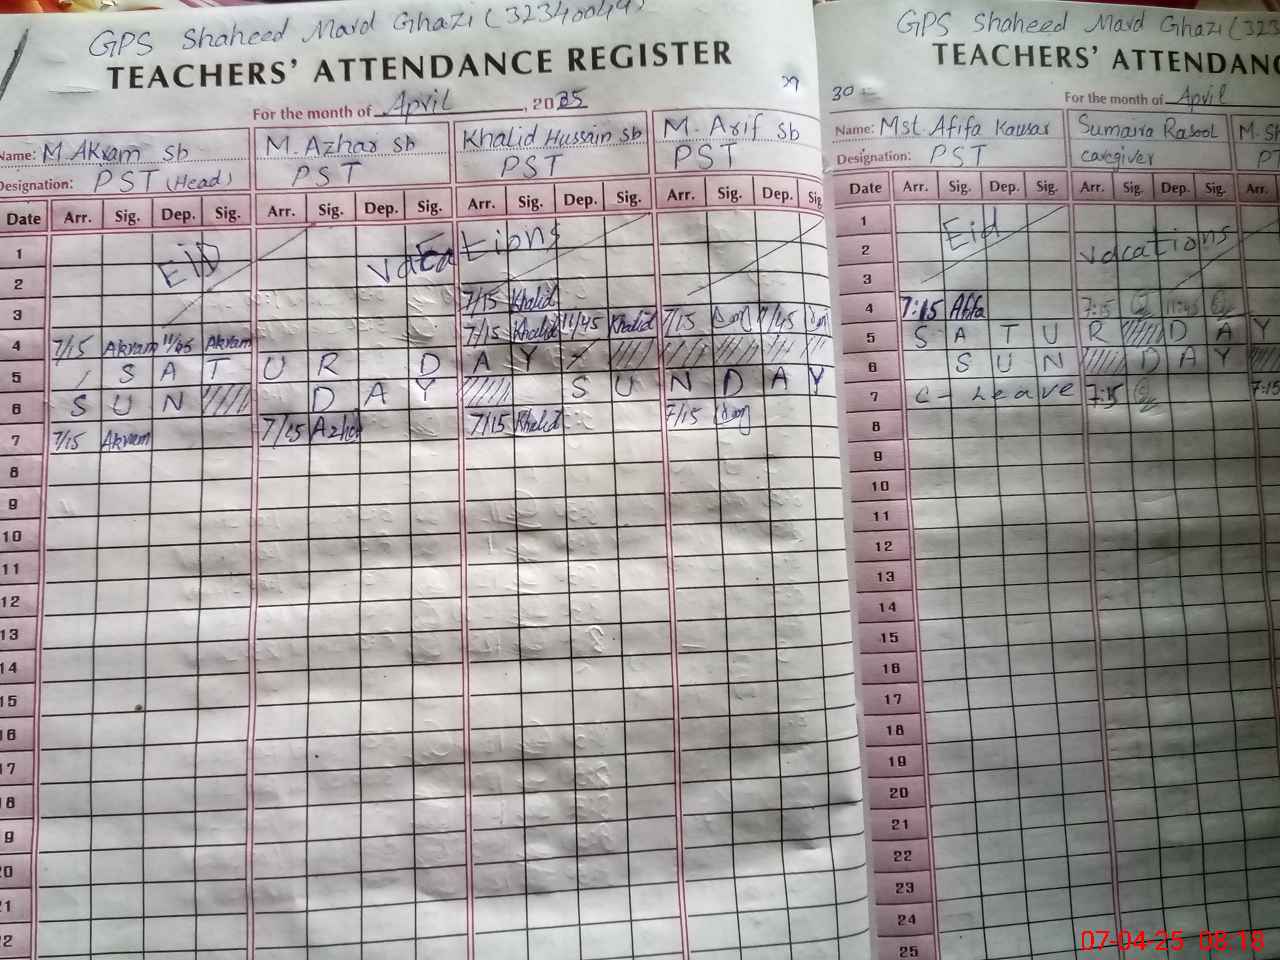 GPS Shaheed Mard Ghazi (32340044)
TEACHERS' ATTENDANCE REGISTER
29
For the month of April, 2025
Name: M. Akram sb M. Azhar sb Khalid Hussain sb M. Arif sb
Designation: PST (Head) PST PST PST
Date Arr. Sig. Dep. Sig. Arr. Sig. Dep. Sig. Arr. Sig. Dep. Sig. Arr. Sig. Dep. Sig
1 Eid vacations
2
3 7/15 Khalid
4 7/15 Akram 11/45 Akram 7/15 Khalid 11/45 Khalid 7/15 11/45
5 S A T U R D A Y
6 S U N D A Y S U N D A Y
7 7/15 Akram 7/15 Azhar 7/15 Khalid 7/15
8
9
10
11
12
13
14
15
16
17
18
19
20
21
22
GPS Shaheed Mard Ghazi (323
TEACHERS' ATTENDANC
30
For the month of April
Name: Mst Afifa Kausar Sumaira Rasool M. Sh
Designation: PST caregiver PT
Date Arr. Sig. Dep. Sig. Arr. Sig. Dep. Sig. Arr.
1 Eid vacations
2
3
4 7:15 Afifa 7:15 11:45
5 S A T U R D A Y
6 S U N D A Y
7 C - Leave 7:15 7:15
8
9
10
11
12
13
14
15
16
17
18
19
20
21
22
23
24
25
07-04-25 08:18